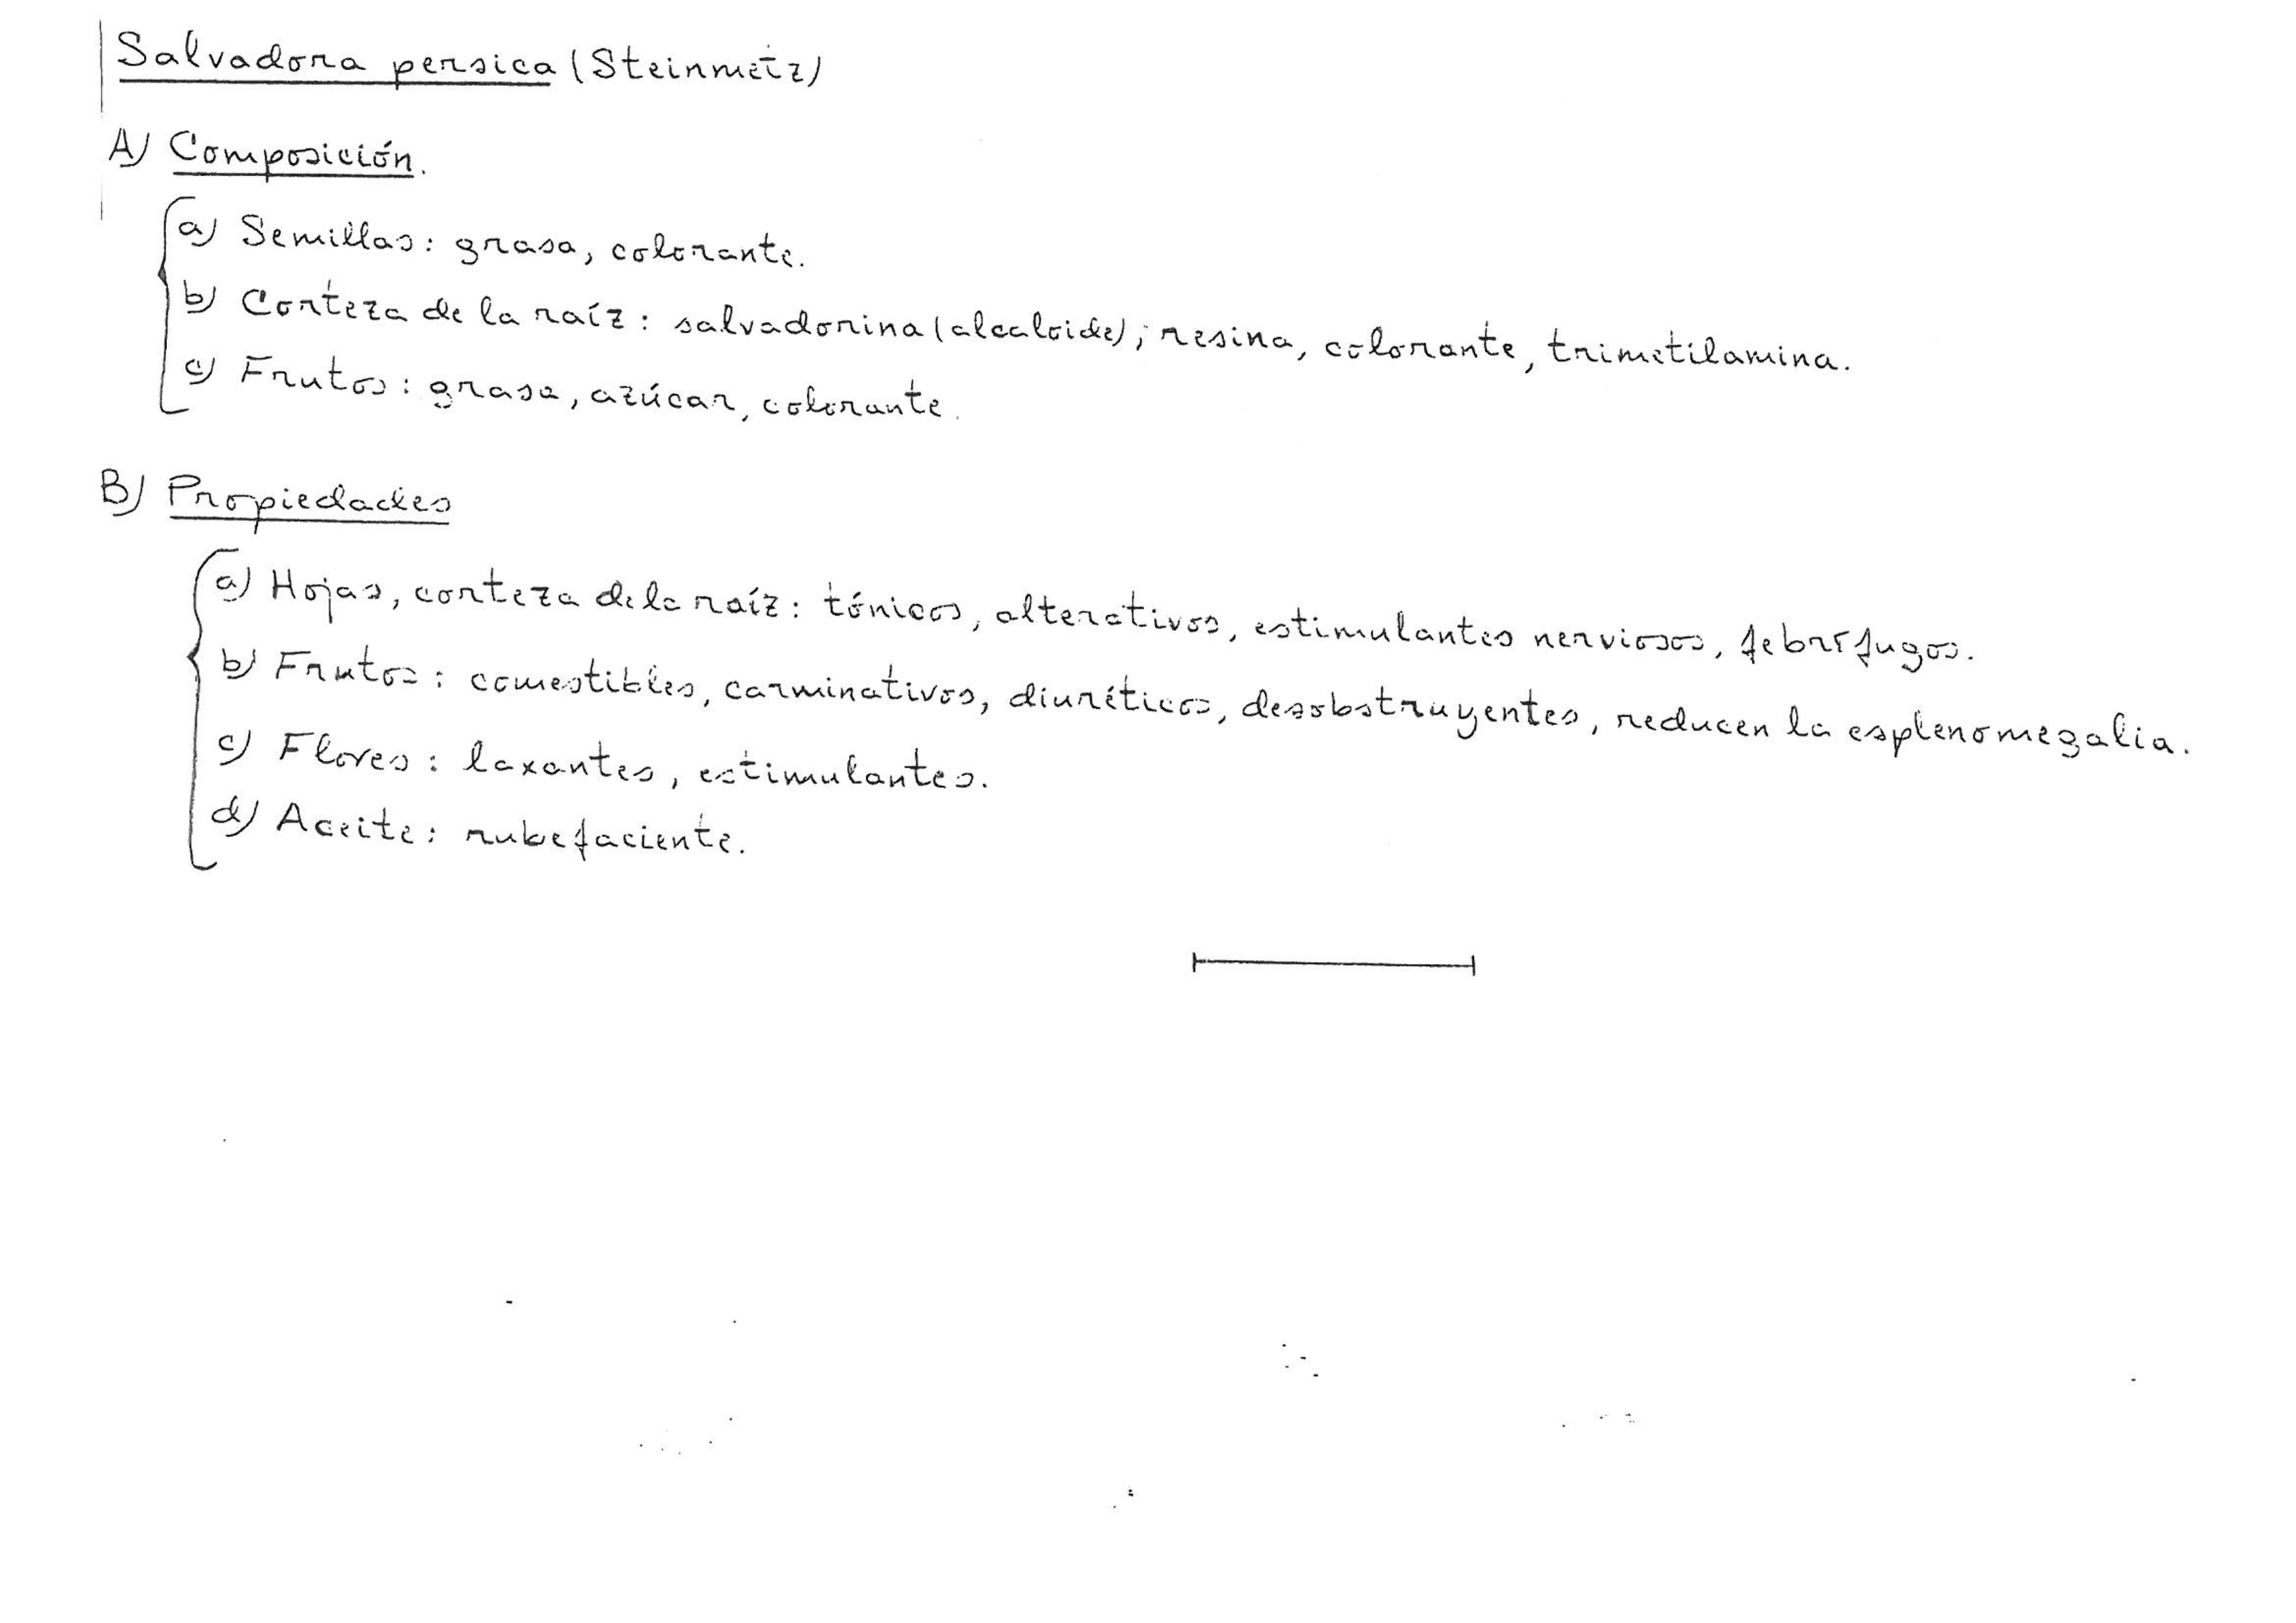 Salvadora persica (Steinmetz)
A) Composición.
a) Semillas: grasa, colorante.
b) Corteza de la raíz: salvadorina (alcaloide); resina, colorante, trimetilamina.
c) Frutos: grasa, azúcar, colorante.
B) Propiedades
a) Hojas, corteza de la raíz: tónicos, alterativos, estimulantes nerviosos, febrífugos.
b) Frutos: comestibles, carminativos, diuréticos, desobstruyentes, reducen la esplenomegalia.
c) Flores: laxantes, estimulantes.
d) Aceite: rubefaciente.